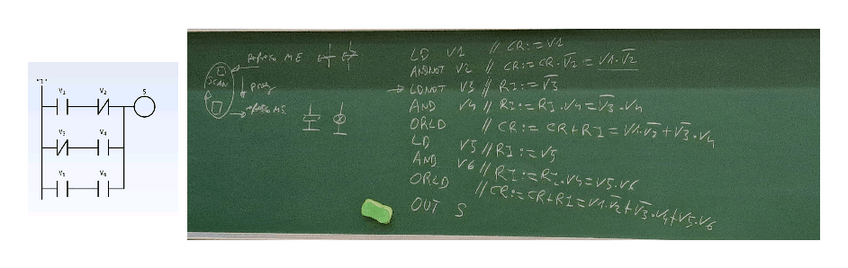 "1"
V₁ V₂ S
V₃ V₄
V₅
SCAN
PROG
LD V1 // CR:=V1
ANDNOT V2 // CR:=CR·V̅2̅=V1·V̅2̅
→ LDNOT V3 // R1:=V̅3̅
AND V4 // R1:=R1·V4=V̅3̅·V4
ORLD // CR:=CR+R1=V1·V̅2̅+V̅3̅·V4
LD V5 // R1:=V5
AND V6 // R1:=R1·V4=V5·V6
ORLD // CR:=CR+R1=V1·V̅2̅+V̅3̅·V4+V5·V6
OUT S